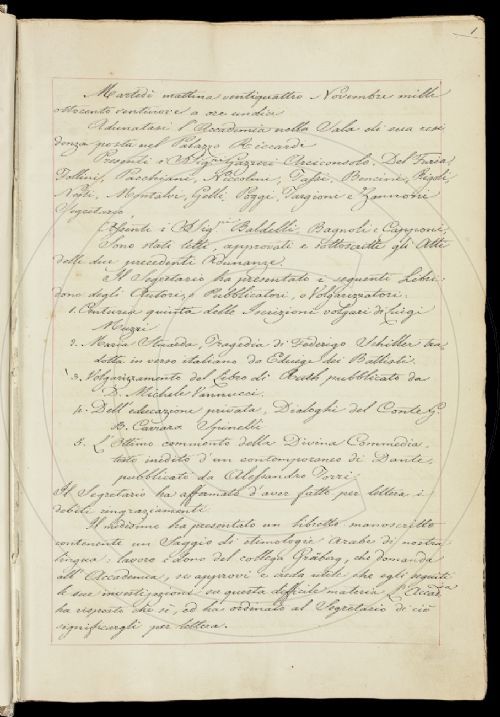 1
Martedì mattina ventiquattro Novembre mille
ottocento ventinove a ore undici
Adunatasi l'Accademia nella Sala di sua resi
denza posta nel Palazzo Riccardi
Presenti i Sig.ri Gazzeri Arciconsolo, Del Furia,
Follini, Pacchiani, Niccolini, Tassi, Bencini, Rigoli,
Nesti, Montalvi, Gelli, Poggi, Targioni e Zannoni
Segretario,
Assenti i Sig.ri Baldelli, Bagnoli e Capponi,
Sono stati letti, approvati e sottoscritti gli Atti
delle due precedenti Adunanze.
Il Segretario ha presentato i seguenti Libri
dono degli Autori, o Pubblicatori, o Volgarizzatori:
1. Centuria quinta delle Iscrizioni volgari di Luigi
Muzzi
2. Maria Stuarda, Tragedia di Federigo Schiller tra
dotta in verso italiano da Edvige dei Battisti.
3. Volgarizzamento del Libro di Ruth pubblicato da
D. Michele Vannucci.
4. Dell'educazione privata, Dialoghi del Conte G.
B. Spinelli
5. L'Ottimo commento della Divina Commedia,
testo inedito d'un contemporaneo di Dante,
pubblicato da Alessandro Torri.
Il Segretario ha affermato d'aver fatto per lettera i
debiti ringraziamenti
Il medesimo ha presentato un libretto manoscritto
contenente un Saggio di etimologie Arabe di nostra
lingua: lavoro e dono del collega Gråberg, che domanda
all'Accademia, se approvi e creda utile che egli seguiti
le sue investigazioni su questa difficile materia. L'Accad.a
ha risposto che sì, ed ha ordinato al Segretario di ciò
significargli per lettera.